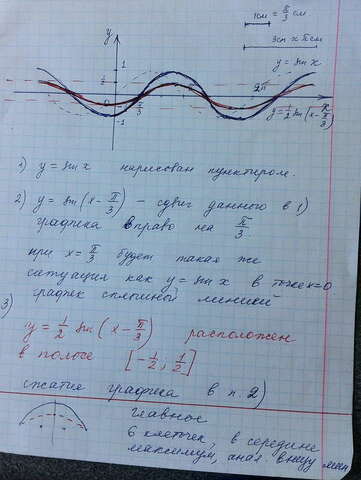 1см = π/3 см
3см ≈ π см
y
y = sin x
1
1/2
0
π/3
2π
-1
y = 1/2 sin(x - π/3)
1) y = sin x нарисован пунктиром.
2) y = sin(x - π/3) - сдвиг данного в 1)
графика вправо на π/3
при x = π/3 будет такая же
ситуация как y = sin x в точке x=0
график сплошной линией
3)
y = 1/2 sin(x - π/3) расположен
в полосе [-1/2, 1/2]
сжатие графика в п. 2)
главное
6 клеточек, в середине
максимум, анал. внизу мин